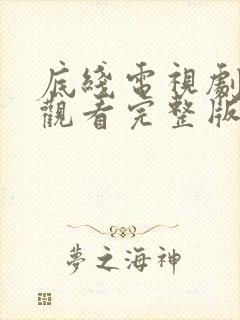 底綫電視劇
觀看完整版
夢之海神